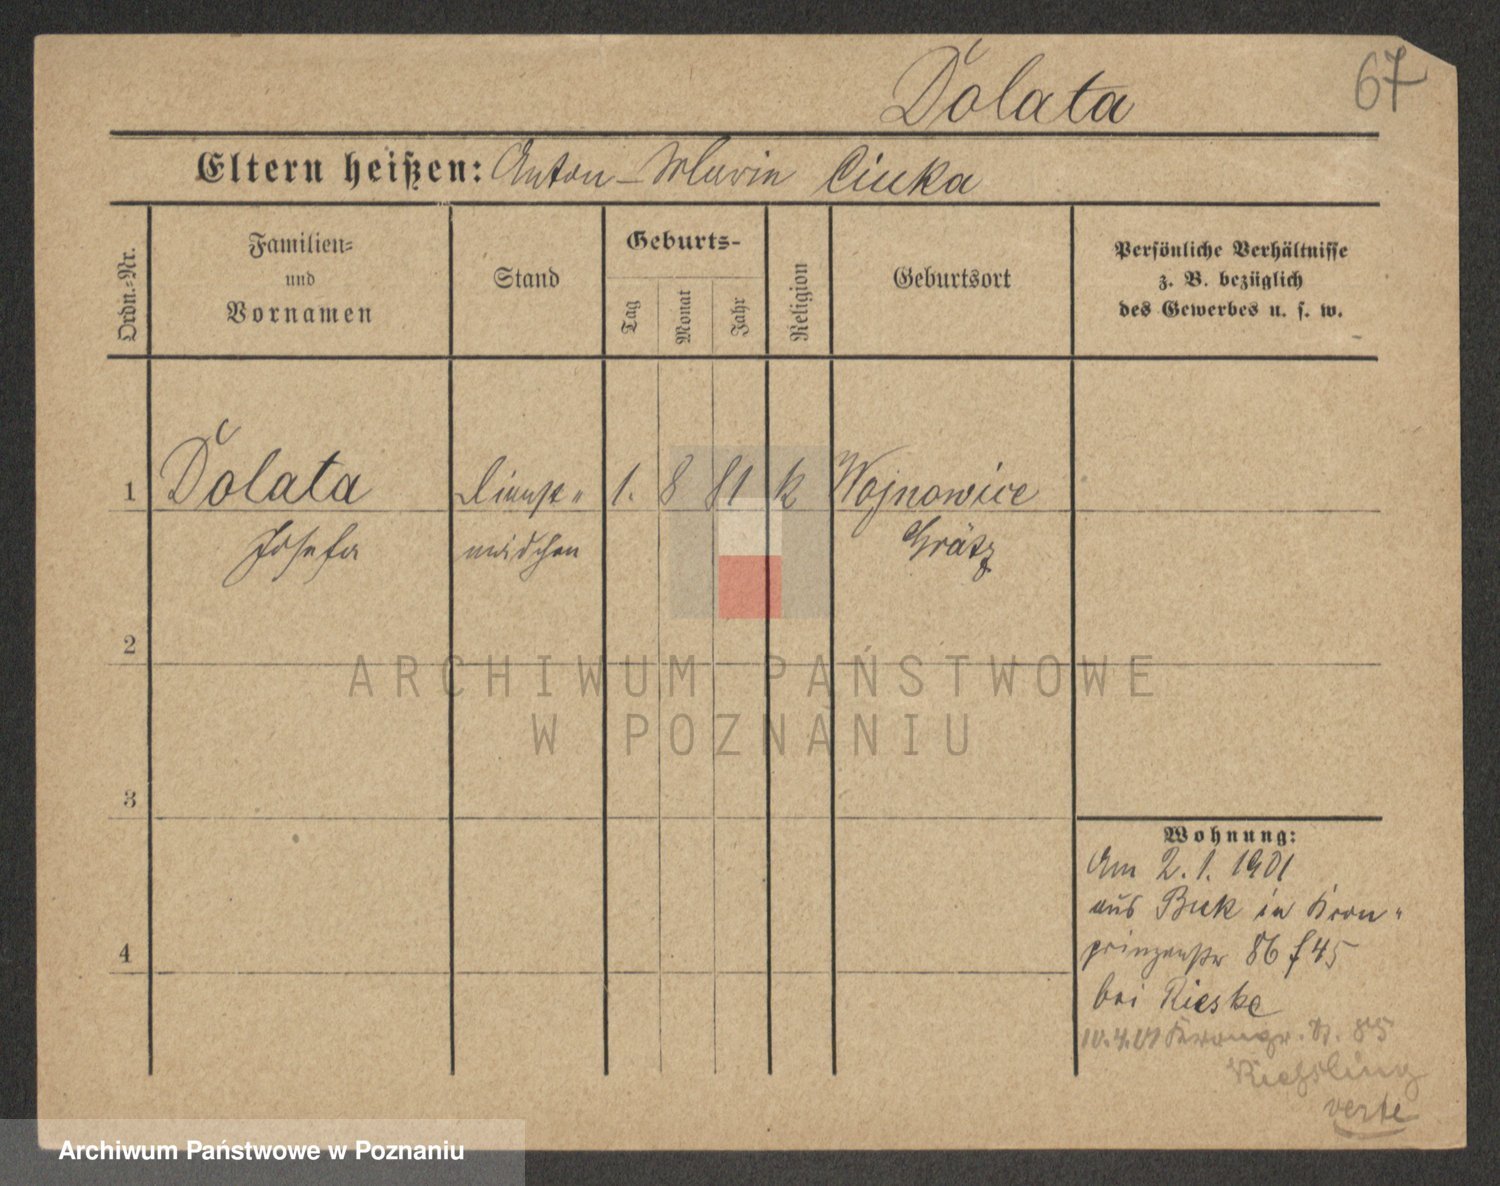 Dolata
67
Eltern heißen: Anton – Marie Ciuka
Ordn.-Nr.
Familien-
und
Vornamen
Stand
Geburts-
Tag
Monat
Jahr
Religion
Geburtsort
Persönliche Verhältnisse
z. B. bezüglich
des Gewerbes u. s. w.
1 Dolata Dienst- 1. 8 81 k Wojnowice
Josefa mädchen Grätz
2
ARCHIWUM PAŃSTWOWE
W POZNANIU
3
Wohnung:
Am 2.1.1901
aus Buk in Kron-
4
prinzenstr 86 f 45
bei Rieske
10.4.01 Kronpr. St. 85
verte
Archiwum Państwowe w Poznaniu